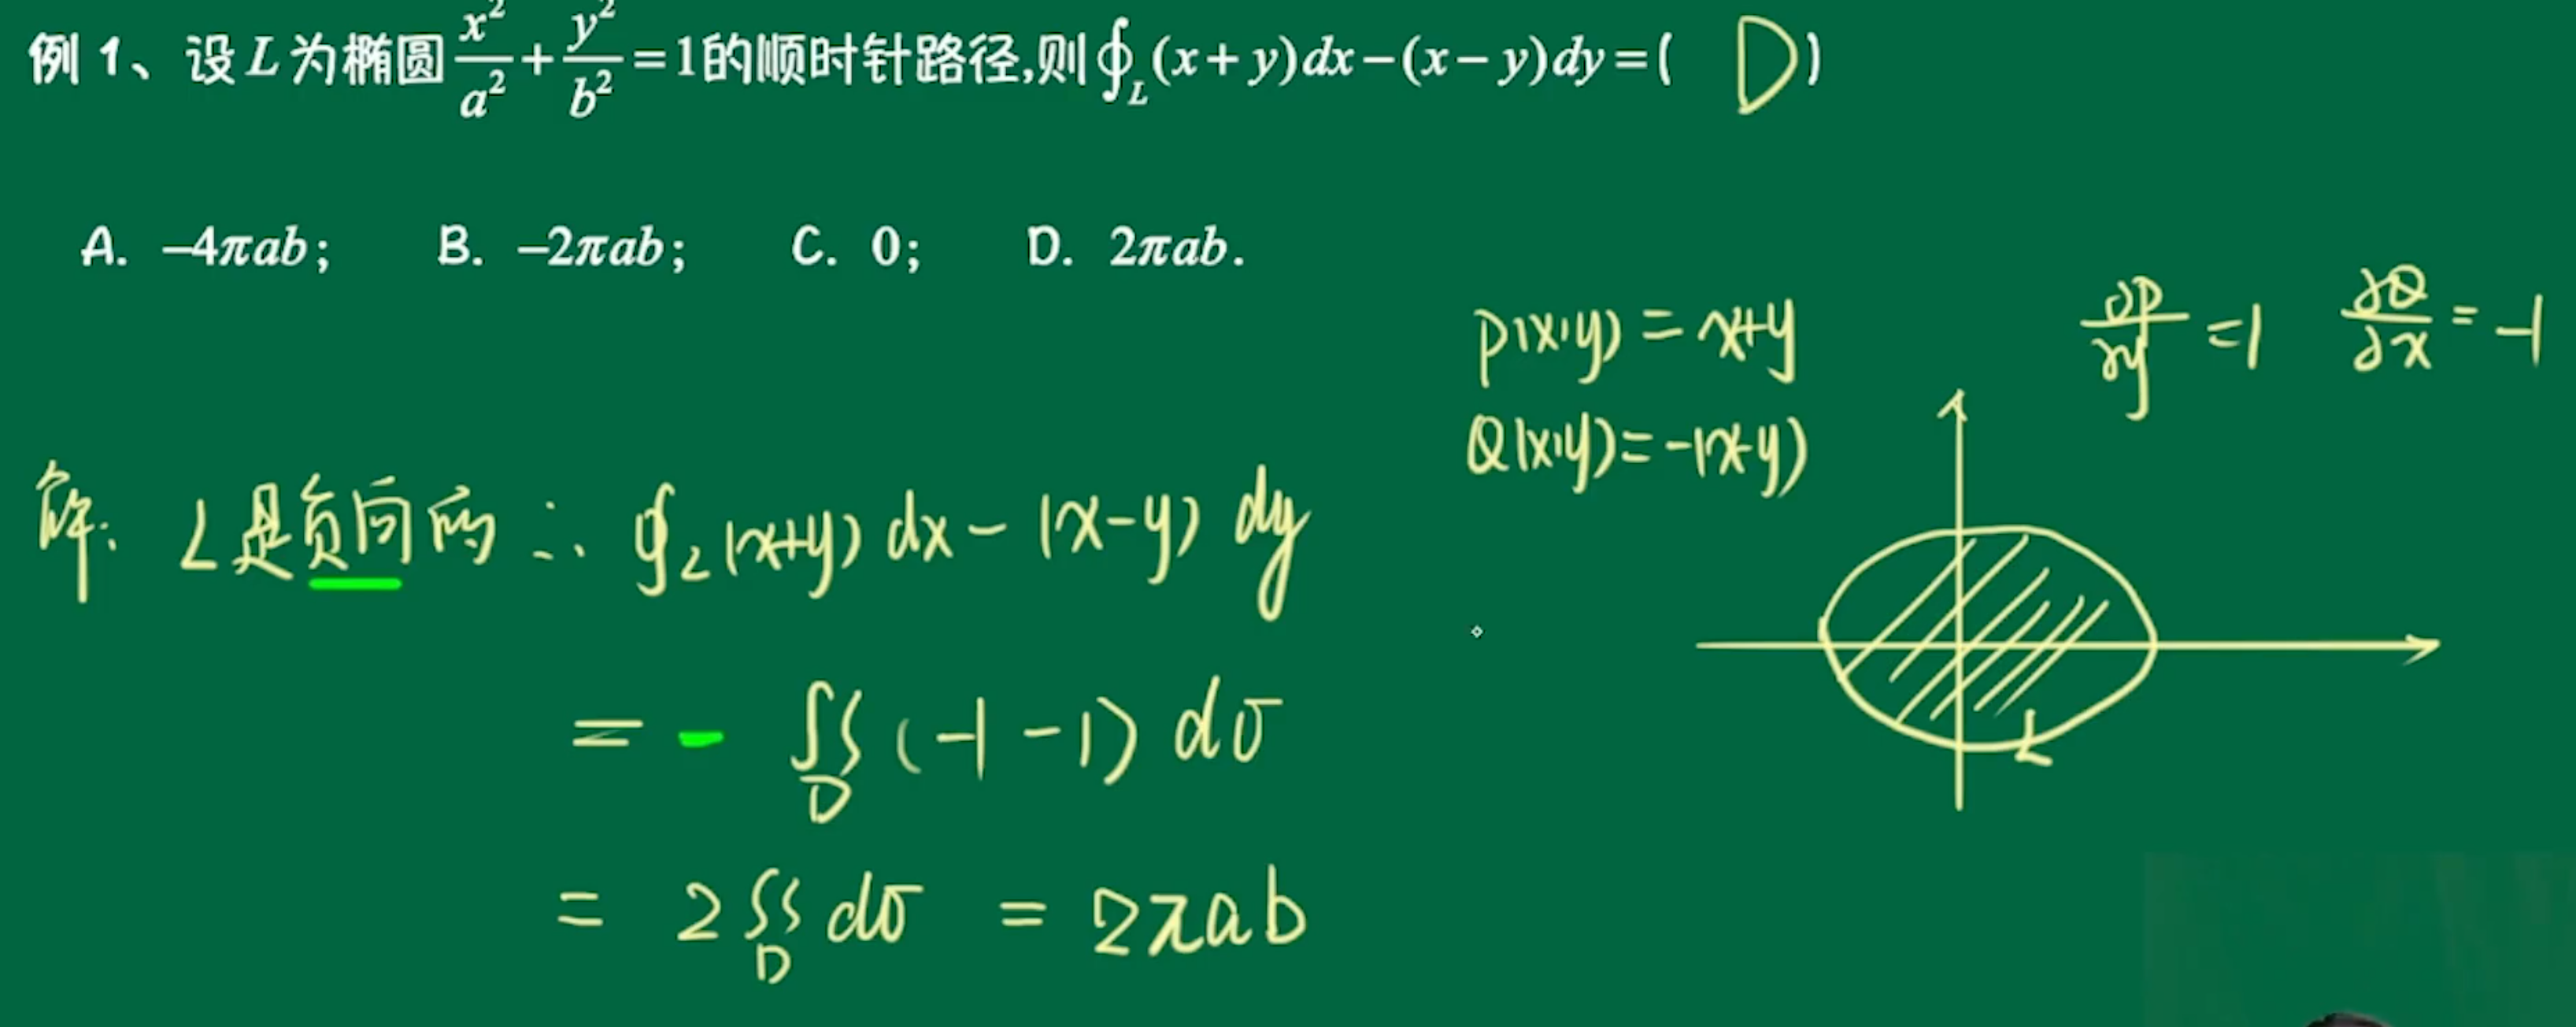 例 1、设 L 为椭圆 x²/a² + y²/b² = 1的顺时针路径,则∮_L (x+y)dx-(x-y)dy=( D )
A. -4πab; B. -2πab; C. 0; D. 2πab.
P(x,y) = x+y ∂P/∂y =1 ∂Q/∂x = -1
Q(x,y)= -(x-y)
解: L是负向的 ∴ ∮_L (x+y) dx - (x-y) dy
= - ∬_D (-1-1) dσ
L
= 2∬_D dσ = 2πab